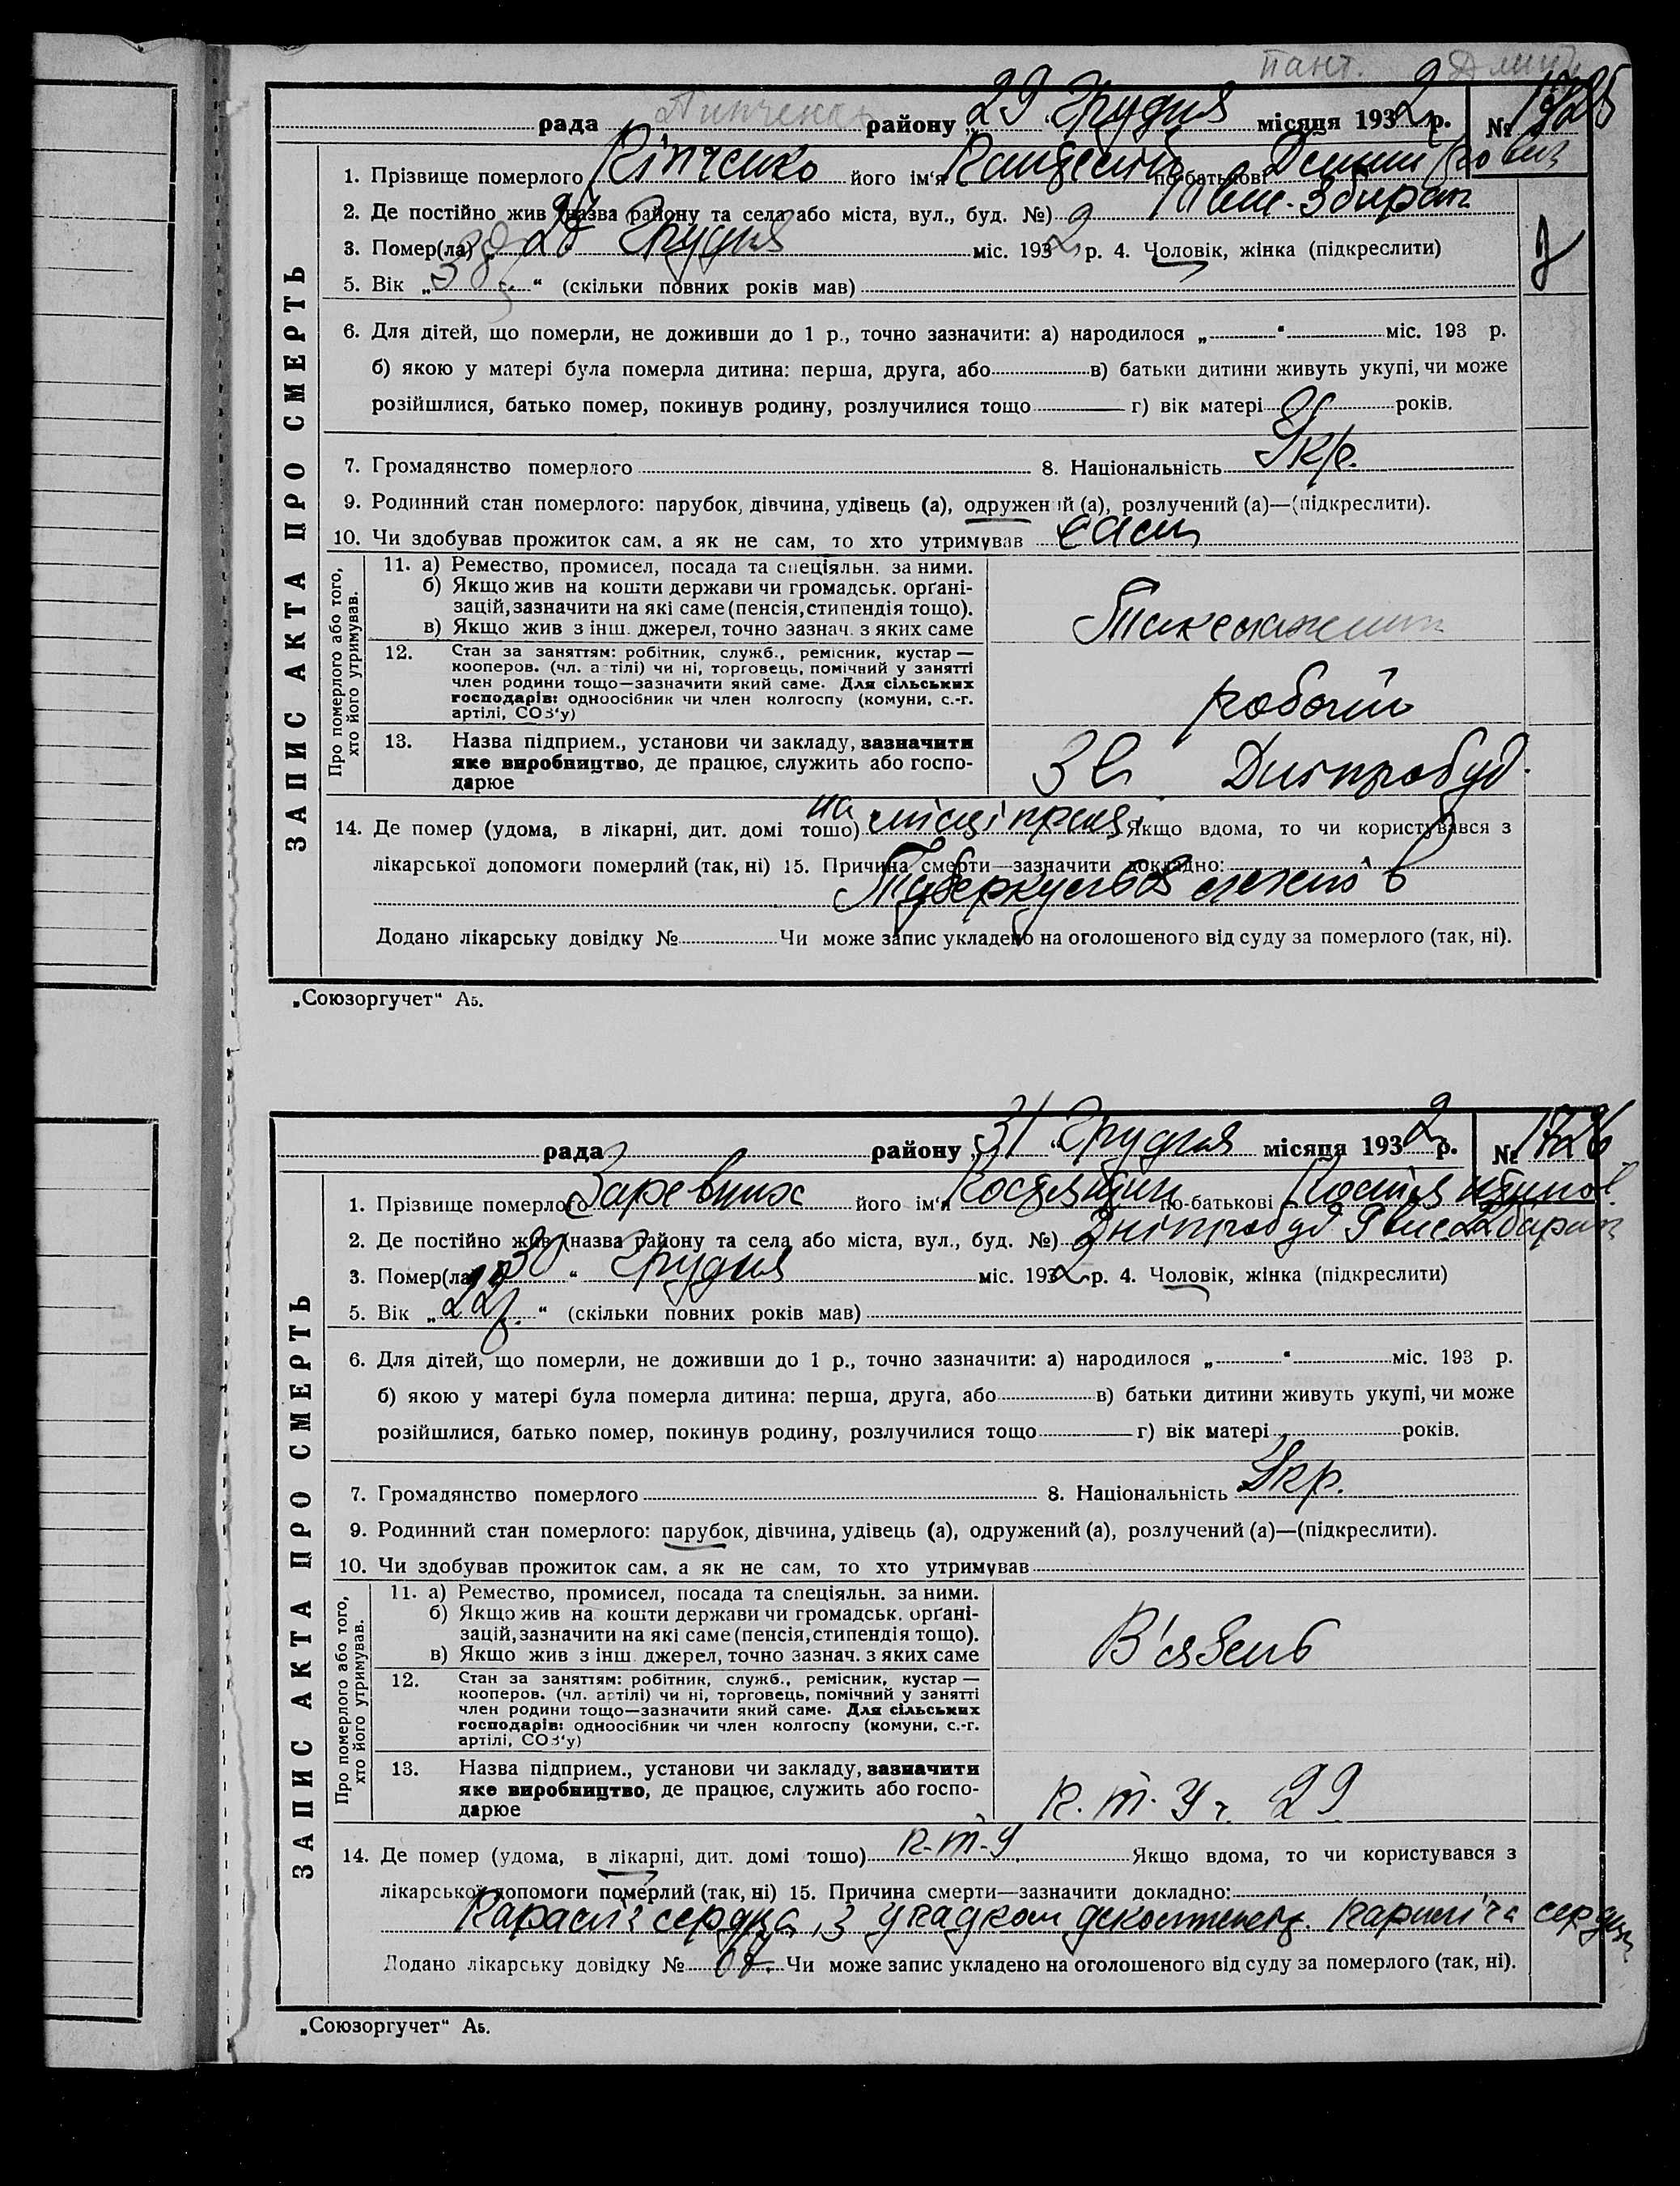 пант.
рада района „29 Грудня місяця 1932 р. № 1725
1. Прізвище померлого Кіпченко його ім'я по-батькові
2. Де постійно жив (назва району та села або міста, вул., буд. №)
3. Помер(ла) „28 Грудня міс. 1932 р. 4. Чоловік, жінка (підкреслити)
5. Вік „38 р. “ (скільки повних років мав)
6. Для дітей, що померли, не доживши до 1 р., точно зазначити: а) народилося „ “ міс. 193 р.
б) якою у матері була померла дитина: перша, друга, або в) батьки дитини живуть укупі, чи може
розійшлися, батько помер, покинув родину, розлучилися тощо г) вік матері років.
7. Громадянство померлого 8. Національність Укр.
9. Родинний стан померлого: парубок, дівчина, удівець (а), одружений (а), розлучений (а)—(підкреслити).
10. Чи здобував прожиток сам, а як не сам, то хто утримував сам
ЗАПИС АКТА ПРО СМЕРТЬ
Про померлого або того, хто його утримував.
11. а) Ремество, промисел, посада та спеціяльн. за ними.
б) Якщо жив на кошти держави чи громадськ. орґані-
зацій, зазначити на які саме (пенсія, стипендія тощо).
в) Якщо жив з інш. джерел, точно зазнач. з яких саме
Такелажник
12. Стан за заняттям: робітник, служб., ремісник, кустар —
кооперов. (чл. артілі) чи ні, торговець, помічний у занятті
член родини тощо—зазначити який саме. Для сільських
господарів: одноосібник чи член колгоспу (комуни, с.-г.
артілі, СОЗ'у)
робочий
13. Назва підприєм., установи чи закладу, зазначити
яке виробництво, де працює, служить або госпо-
дарює
Дніпробуд.
14. Де помер (удома, в лікарні, дит. домі тощо) на місці праці Якщо вдома, то чи користувався з
лікарської допомоги померлий (так, ні) 15. Причина смерти—зазначити докладно:
Туберкульоз легенів
Додано лікарську довідку № Чи може запис укладено на оголошеного від суду за померлого (так, ні).
„Союзоргучет“ А5.
рада району „31 “ Грудня місяця 1932 р. № 1726
1. Прізвище померлого його ім'я Костянтин по-батькові
2. Де постійно жив (назва району та села або міста, вул., буд. №) Дніпробуд
3. Помер(ла) „30 “ Грудня міс. 1932 р. 4. Чоловік, жінка (підкреслити)
5. Вік „22 р. “ (скільки повних років мав)
6. Для дітей, що померли, не доживши до 1 р., точно зазначити: а) народилося „ “ міс. 193 р.
б) якою у матері була померла дитина: перша, друга, або в) батьки дитини живуть укупі, чи може
розійшлися, батько помер, покинув родину, розлучилися тощо г) вік матері років.
7. Громадянство померлого 8. Національність Укр.
9. Родинний стан померлого: парубок, дівчина, удівець (а), одружений (а), розлучений (а)—(підкреслити).
10. Чи здобував прожиток сам, а як не сам, то хто утримував
ЗАПИС АКТА ПРО СМЕРТЬ
Про померлого або того, хто його утримував.
11. а) Ремество, промисел, посада та спеціяльн. за ними.
б) Якщо жив на кошти держави чи громадськ. орґані-
зацій, зазначити на які саме (пенсія, стипендія тощо).
в) Якщо жив з інш. джерел, точно зазнач. з яких саме
В'язень
12. Стан за заняттям: робітник, служб., ремісник, кустар —
кооперов. (чл. артілі) чи ні, торговець, помічний у занятті
член родини тощо—зазначити який саме. Для сільських
господарів: одноосібник чи член колгоспу (комуни, с.-г.
артілі, СОЗ'у)
13. Назва підприєм., установи чи закладу, зазначити
яке виробництво, де працює, служить або госпо-
дарює
К.т.У. 29
14. Де помер (удома, в лікарні, дит. домі тощо) К.т.У. Якщо вдома, то чи користувався з
лікарської допомоги померлий (так, ні) 15. Причина смерти—зазначити докладно:
сердца, з
Додано лікарську довідку № Чи може запис укладено на оголошеного від суду за померлого (так, ні).
„Союзоргучет“ А5.